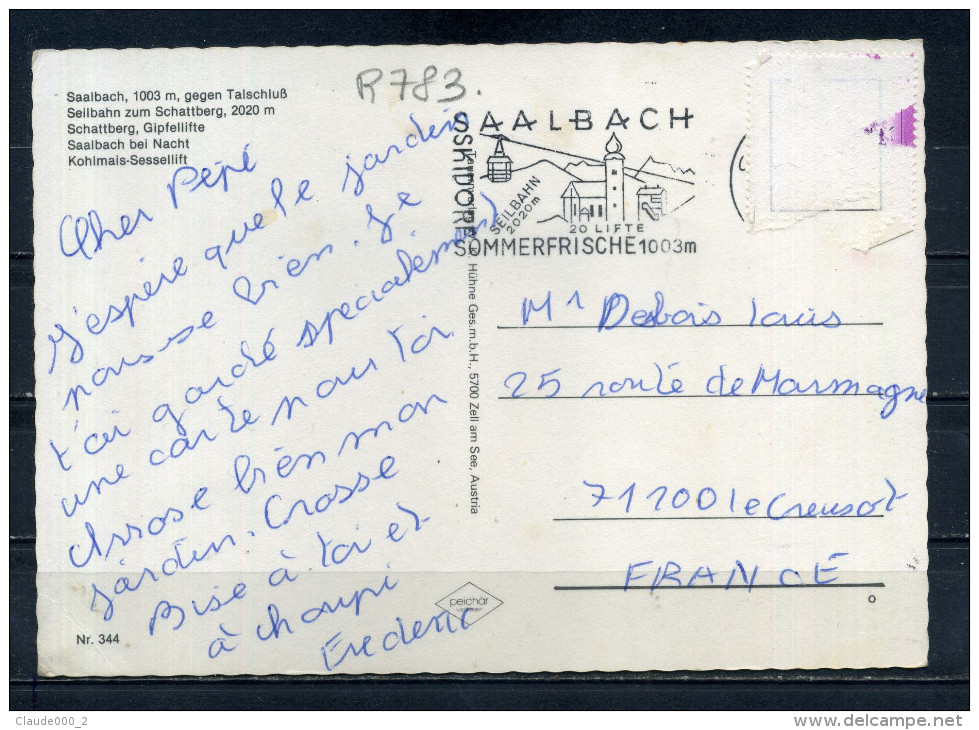 R783.
Saalbach, 1003 m, gegen Talschluß
Seilbahn zum Schattberg, 2020 m
Schattberg, Gipfellifte
Saalbach bei Nacht
Kohlmais-Sessellift
Cher Pépé
J'espère que le jardin
pousse bien. Je
t'ai gardé spécialement
une carte pour toi
Arrose bien mon
jardin. Grosse
Bise à toi et
à choupi
Frederic
Nr. 344
SAALBACH
SKIDORF
SEILBAHN
2020m
20 LIFTE
SOMMERFRISCHE 1003m
Hühne Ges.m.b.H., 5700 Zell am See, Austria
peichär
Mr Desbois louis
25 route de Marmagne
71200 le Creusot
FRANCE
Claude000_2
delcampe.net